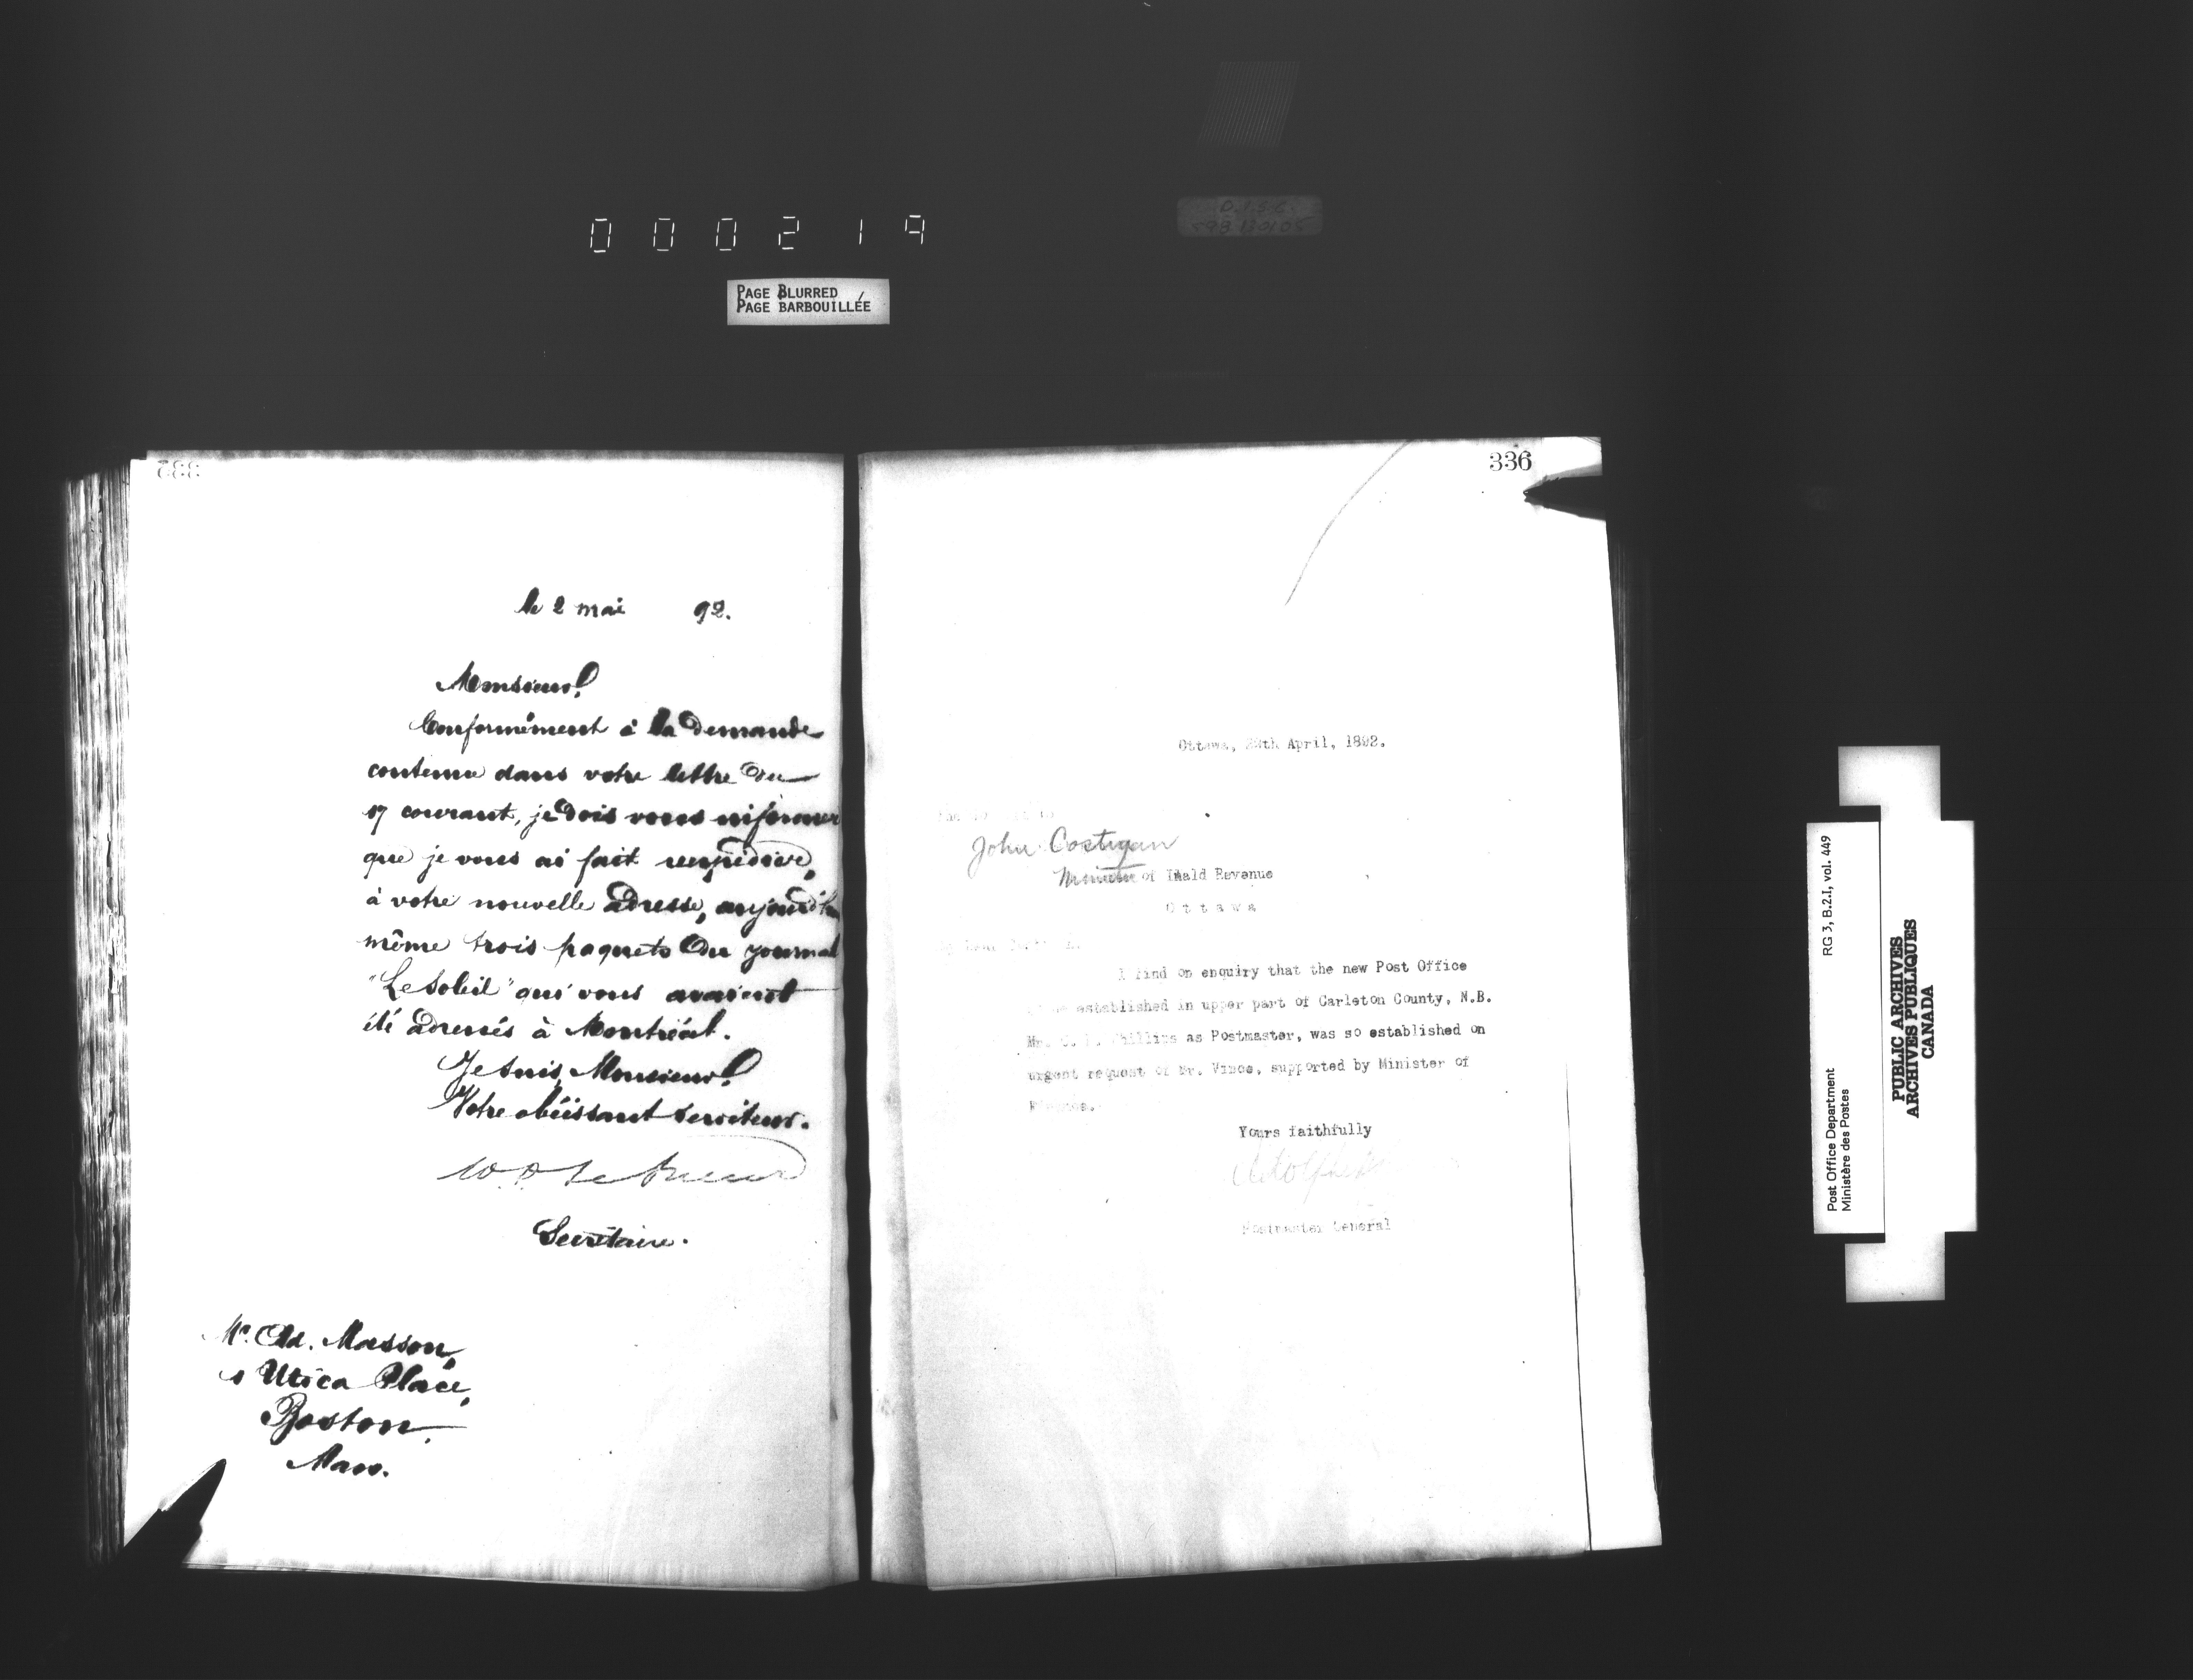 000219
PAGE BLURRED
PAGE BARBOUILLÉE
le 2 mai 92.
Monsieur,
Conformément à la demande
contenue dans votre lettre du
17 courant, je dois vous informer
que je vous ai fait réexpédier,
à votre nouvelle adresse, aujourd'hui
même trois paquets du journal
"Le Soleil" qui vous avaient
été adressés à Montréal.
Je suis, Monsieur,
Votre obéissant serviteur.
Secrétaire.
Mr. Ad. Masson,
1 Utica Place,
Boston
Mass.
336
Ottawa, April, 1892.
John Costigan
Minister of Inland Revenue
Ottawa
I find on enquiry that the new Post Office
established in upper part of Carleton County, N.B.
Mr. Phillips as Postmaster, was so established on
urgent request of Mr. Vince, supported by Minister of
Finance.
Yours faithfully
Postmaster General
RG 3, B.2.1, vol. 449
Post Office Department
Ministère des Postes
PUBLIC ARCHIVES
ARCHIVES PUBLIQUES
CANADA